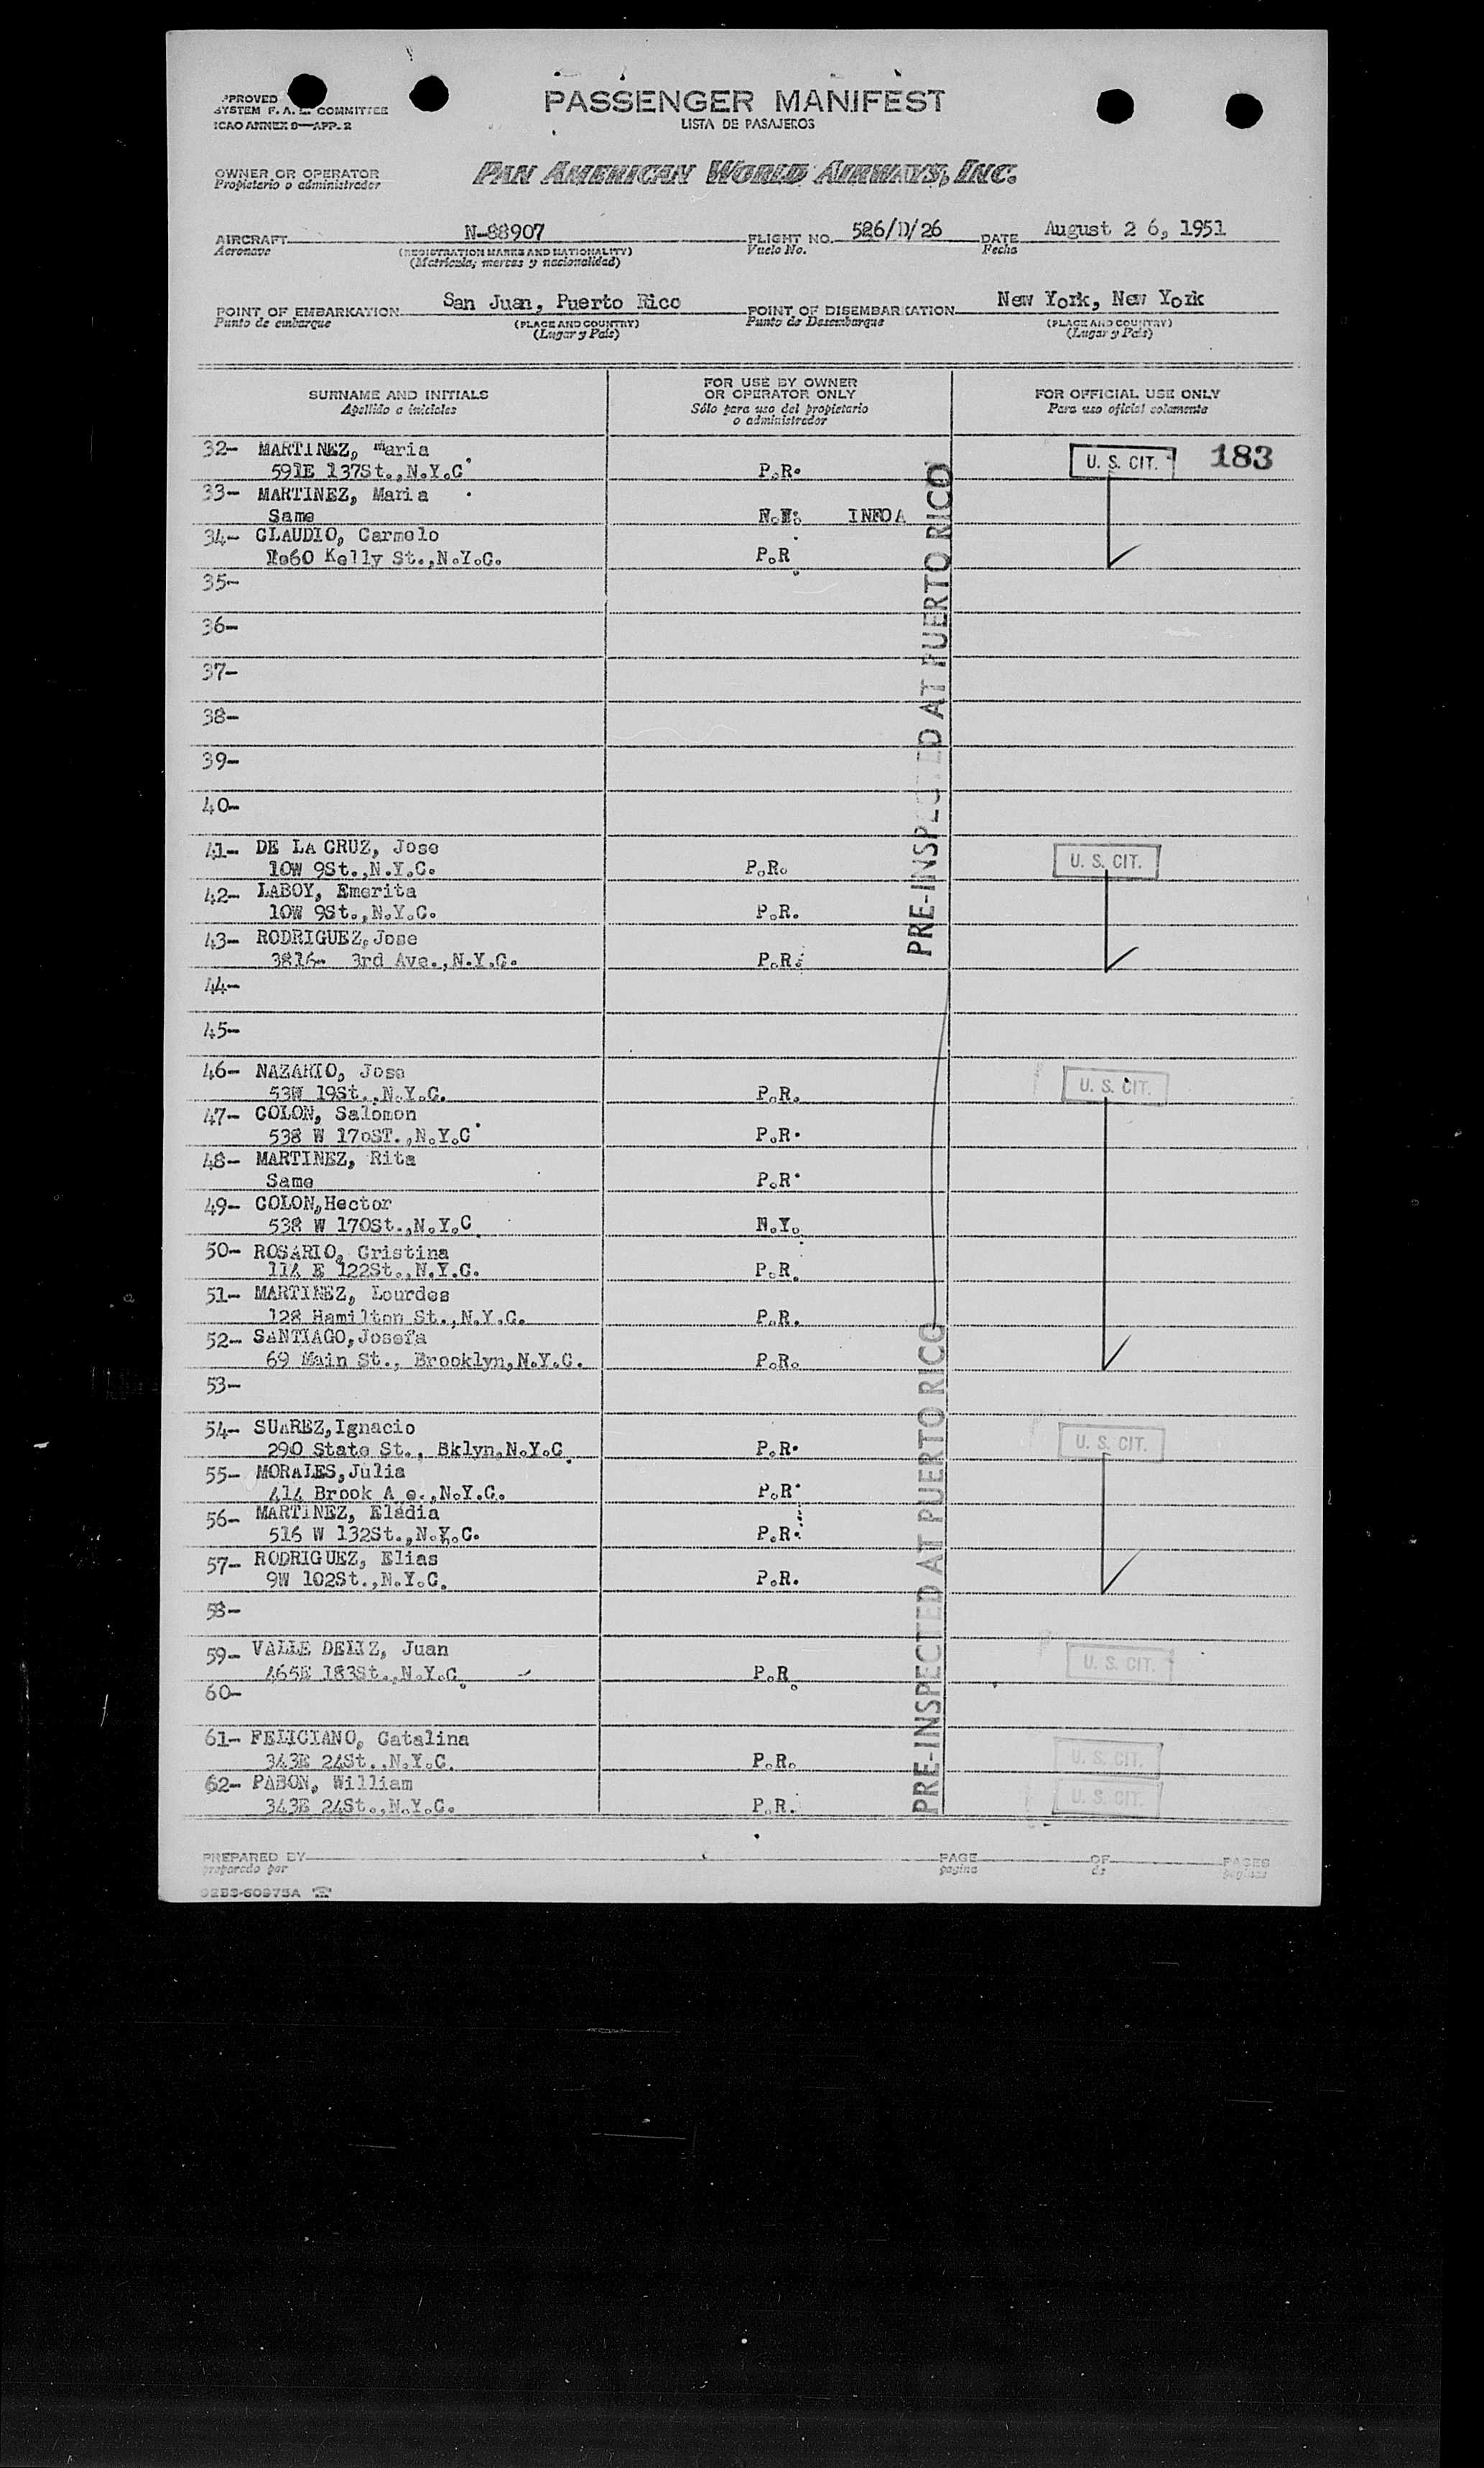 PPROVED
SYSTEM F. A. L. COMMITTEE
ICAO ANNEX 9—APP. 2
PASSENGER MANIFEST
LISTA DE PASAJEROS
OWNER OR OPERATOR
Propietario o administrador
PAN AMERICAN WORLD AIRWAYS, INC.
AIRCRAFT N-88907 FLIGHT NO. 526/D/26 DATE August 2 6, 1951
Aeronave (REGISTRATION MARKS AND NATIONALITY) Vuelo No. Fecha
(Matricula; marcas y nacionalidad)
POINT OF EMBARKATION San Juan, Puerto Rico POINT OF DISEMBARKATION New York, New York
Punto de embarque (PLACE AND COUNTRY) Punto de Desembarque (PLACE AND COUNTRY)
(Lugar y Pais) (Lugar y Pais)
SURNAME AND INITIALS
Apellido e iniciales
FOR USE BY OWNER
OR OPERATOR ONLY
Sólo para uso del propietario
o administrador
FOR OFFICIAL USE ONLY
Para uso oficial solamente
32- MARTINEZ, maria
591E 137St.,N.Y.C. P.R. U. S. CIT. 183
33- MARTINEZ, Maria
Same INFO A
34- CLAUDIO, Carmelo
Kelly St.,N.Y.C. P.R.
35-
36-
37-
38-
39-
40-
PRE-INSPECTED AT PUERTO RICO
41- DE LA CRUZ, Jose
10W 9St.,N.Y.C. P.R. U. S. CIT.
42- LABOY, Emerita
10W 9St.,N.Y.C. P.R.
43- RODRIGUEZ,Jose
3816- 3rd Ave.,N.Y.C. P.R.
44-
45-
46- NAZARIO, Jose
53W 19St.,N.Y.C. P.R. U. S. CIT.
47- COLON, Salomon
538 W 170ST.,N.Y.C. P.R.
48- MARTINEZ, Rita
Same P.R.
49- COLON,Hector
538 W 170St.,N.Y.C. N.Y.
50- ROSARIO, Cristina
114 E 122St.,N.Y.C. P.R.
51- MARTINEZ, Lourdes
128 Hamilton St.,N.Y.C. P.R.
52- SANTIAGO,Josefa
69 Main St., Brooklyn,N.Y.C. P.R.
53-
54- SUAREZ,Ignacio
290 State St., Bklyn,N.Y.C. P.R. U. S. CIT.
55- MORALES,Julia
414 Brook A e.,N.Y.C. P.R.
56- MARTINEZ, Eladia
516 W 132St.,N.Y.C. P.R.
57- RODRIGUEZ, Elias
9W 102St.,N.Y.C. P.R.
58-
59- VALLE DELIZ, Juan
465E 183St.,N.Y.C. P.R. U. S. CIT.
60-
61- FELICIANO, Catalina
343E 24St.,N.Y.C. P.R. U. S. CIT.
62- PABON, William
343E 24St.,N.Y.C. P.R. U. S. CIT.
PRE-INSPECTED AT PUERTO RICO
PREPARED BY PAGE OF PAGES
preparado por pagina de paginas